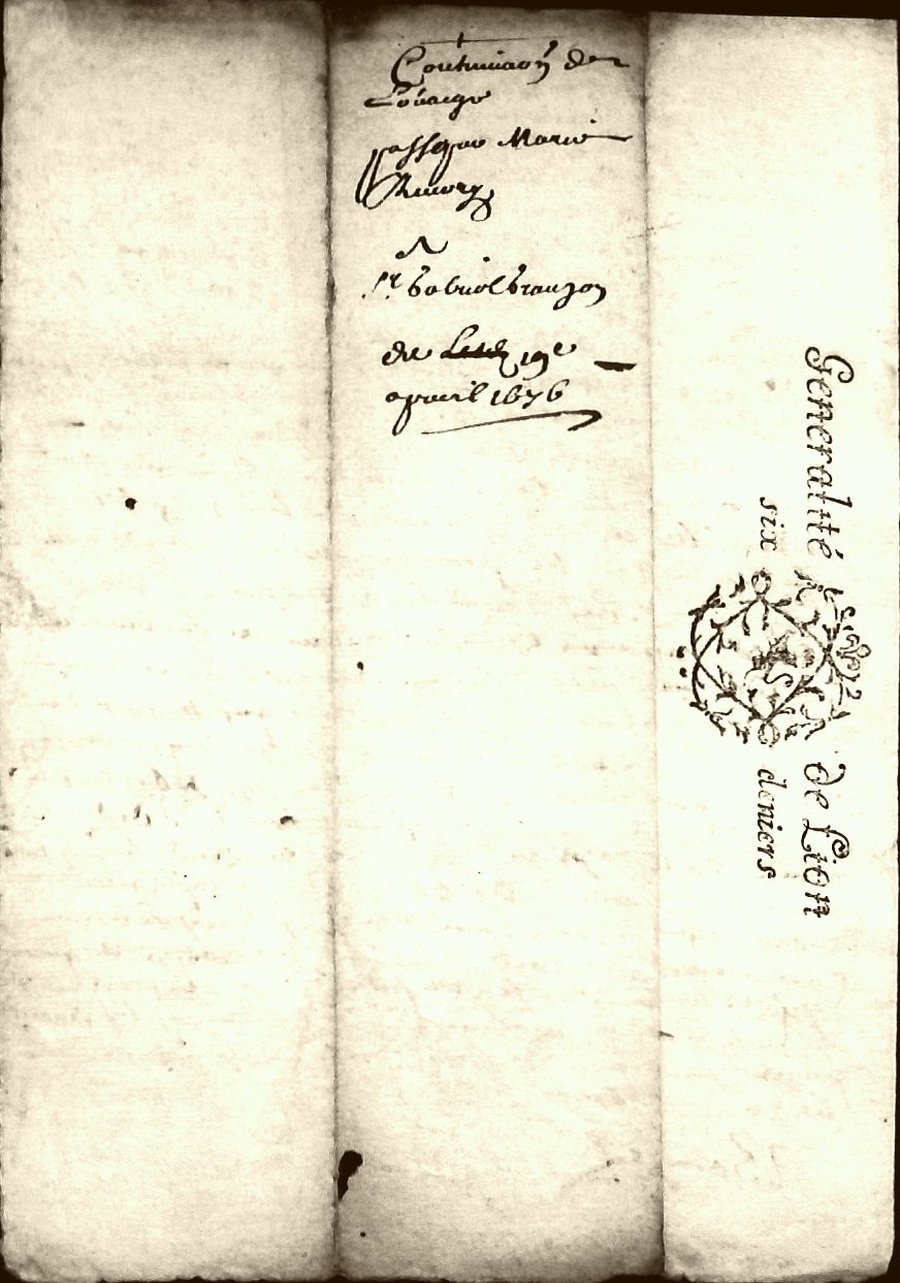 Continuaon de
Louage
passé par Marie
A
Sr Gabriel
du 19e
apvril 1676
Generalité de Lion
six deniers